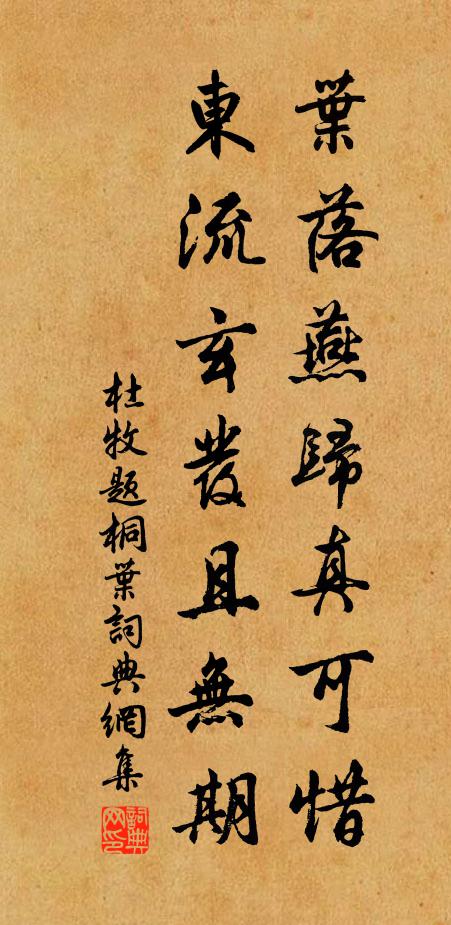 葉落燕歸真可惜
東流玄發且無期
杜牧題桐葉詞典網集
詞典網印